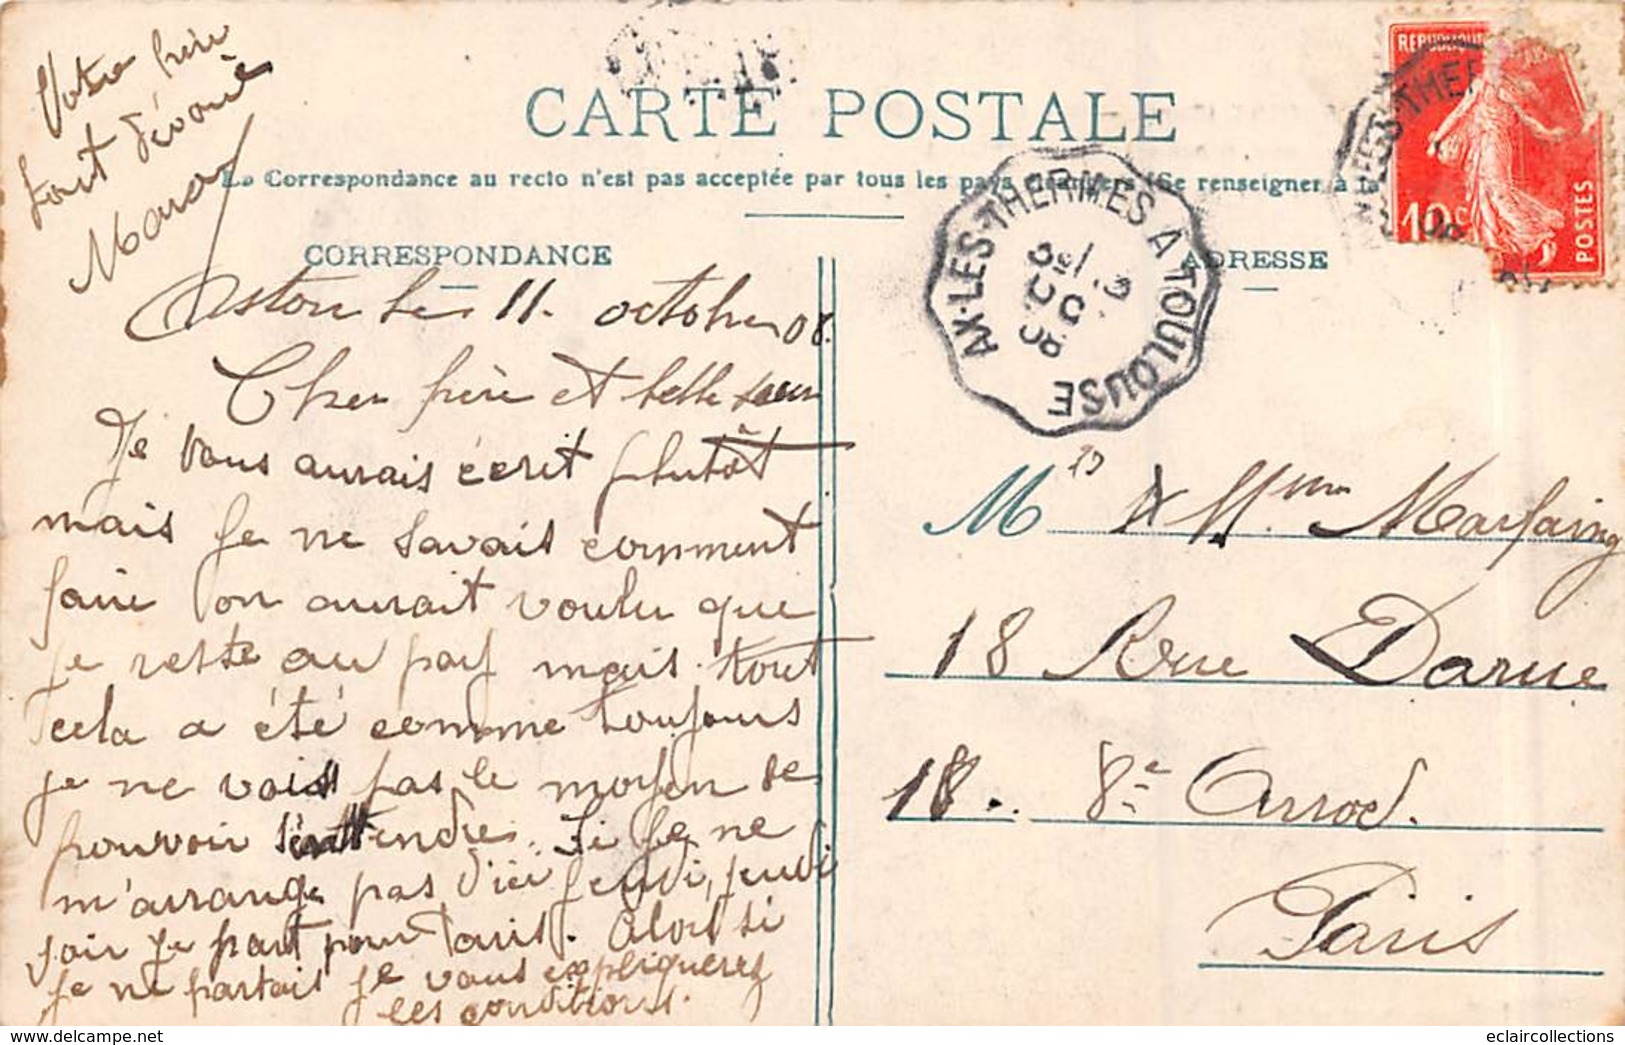 Votre frère
tout dévoué
CARTE POSTALE
La Correspondance au recto n'est pas acceptée par tous les pays étrangers (Se renseigner à la
CORRESPONDANCE
ADRESSE
REPUBLIQUE
10c
POSTES
AX-LES-THERMES A TOULOUSE
Aston le 11. octobre 08.
Cher frère et belle soeur
Je vous aurais écrit plutôt
mais je ne savais comment
faire on aurait voulu que
je reste au pay mais tout
cela a été comme toujours
je ne vois pas le moyen de
pouvoir s'entendre. Si je ne
m'arrange pas d'ici jeudi, jeudi
soir je part pour Paris. Alors si
je ne partais je vous expliquerez
les conditions.
M & Mme Marfaing
18 Rue Darue
18 . 8e Arrod.
Paris
eclaircollections